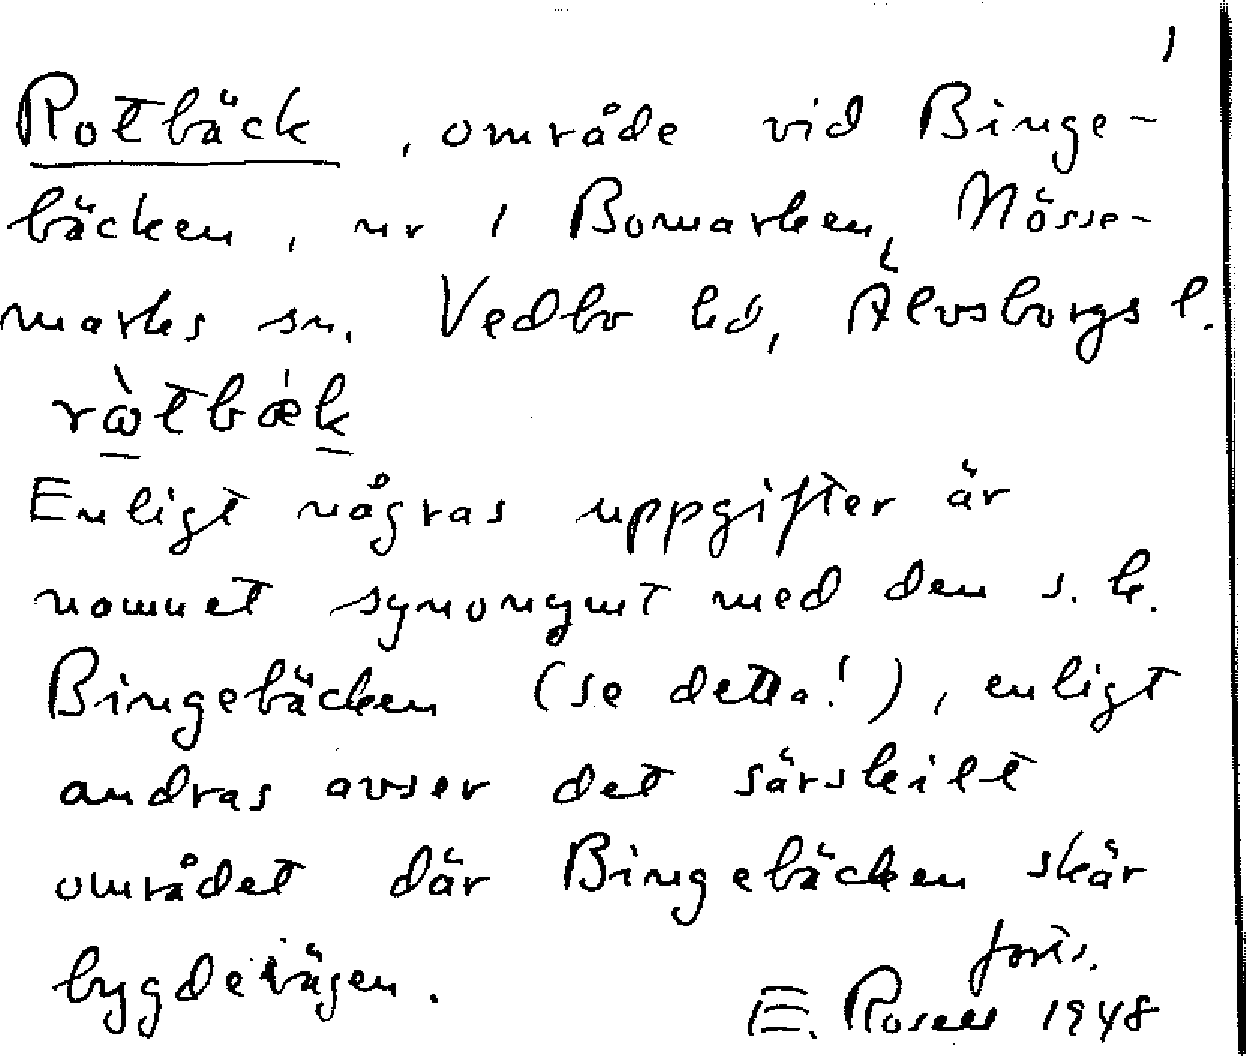 1
Rotbäck, område vid Binge-
bäcken, nr 1 Bomarken, Nösse-
marks sn. Vedbo hd, Älvsborgs l.
rὼtbǽk
Enligt någras uppgifter är
namnet synonymt med den s.k.
Bingebäcken (se detta!), enligt
andras avser det särskilt
området där Bingebäcken skär
bygdevägen.
forts.
E. Rosell 1948